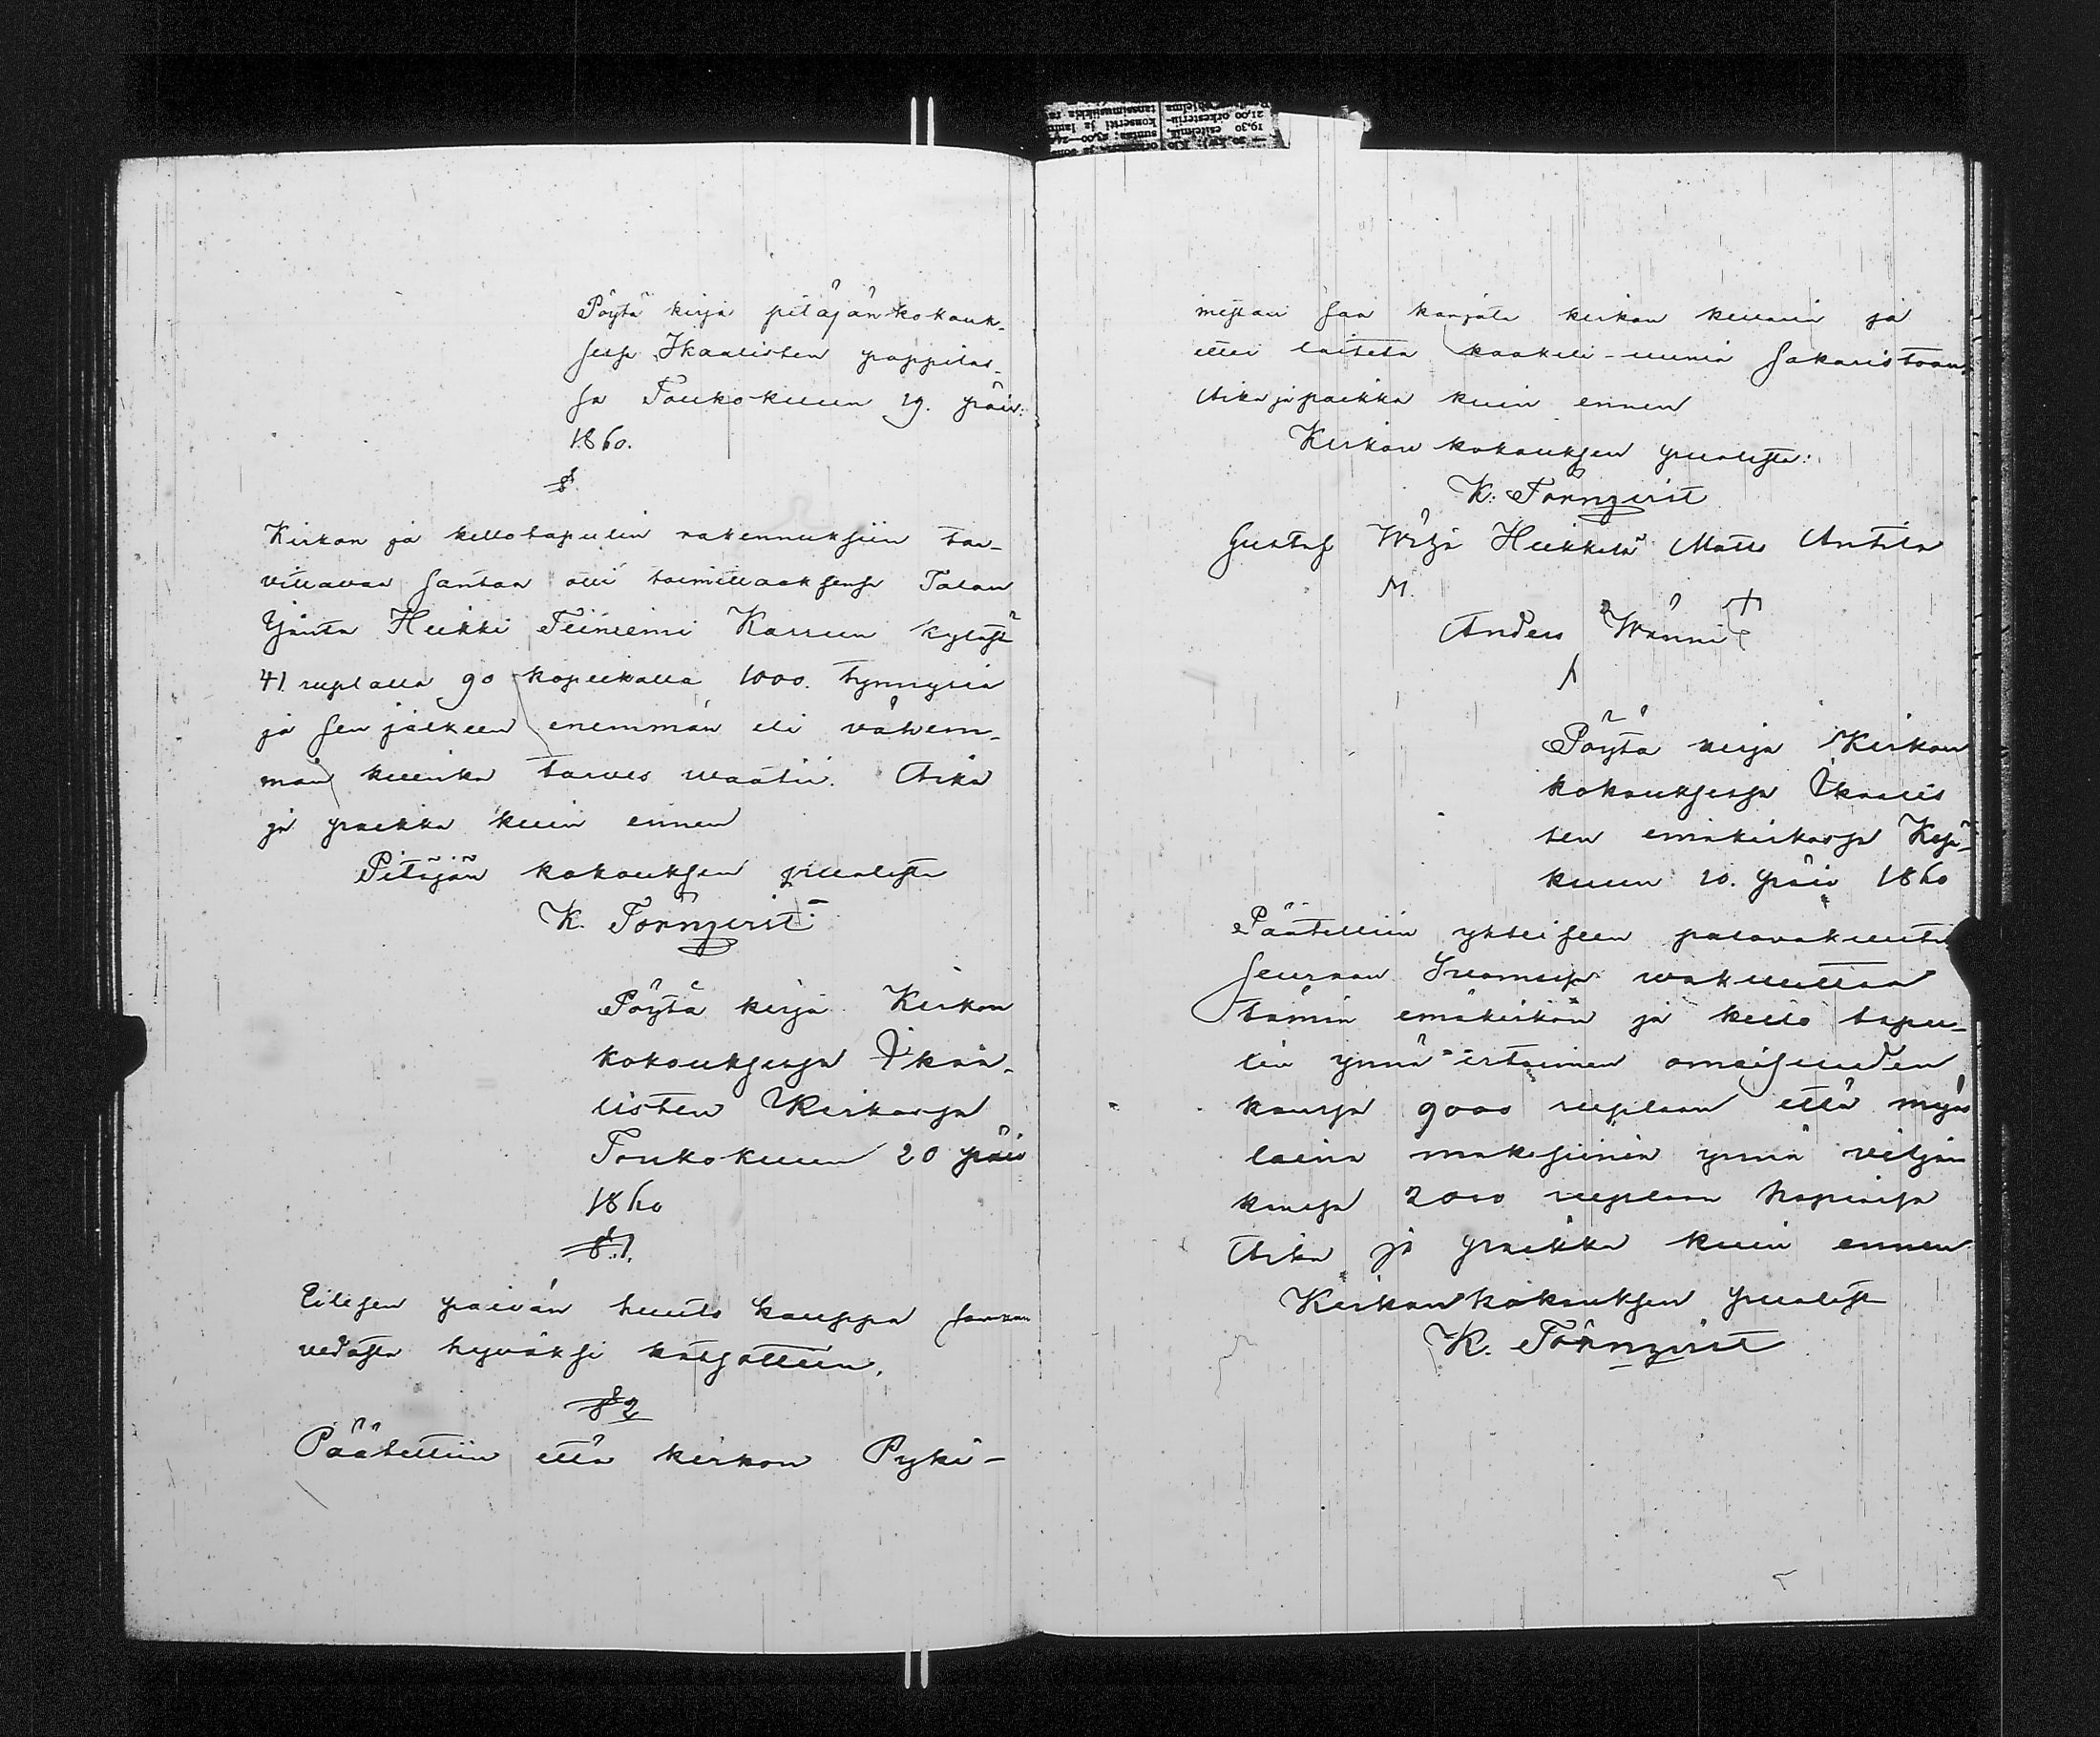 Pöytä kirja pitäjän kokouk-
sesa Ikaalisten pappilas-
sa Toukokuun 19. päiv:
1860.
§
Kirkon ja kellotapulin rakennuksiin tar-
vittavan santan otti toimittaaksensa Talon
Isäntä Heikki Teiniemi Karsun kylästä
41 ruplalla 90 kopeikalla 1000. tynnyriä
ja sen jälkeen enemmän eli vähem-
män kuinka tarves waatii. Aika
ja paikka kuin ennen
Pitäjän kokouksen puolesta
K. Törnqvist
Pöytä kirja Kirkon
kokouksesa Ikaa-
listen Kirkosa
Toukokuun 20 päiv
1860
§.1.
Eilisen päivän huuto kauppa sannan
vedosta hyväksi katsottiin.
§ 2
Päätettiin että kirkon Pyki-
mestari saa korjata kirkon kunnin ja
ettei laiteta kaakeli-uunia Sakaristoon
Aika ja paikka kuin ennen
Kirkon kokouksen puolesta:
K. Törnqvist
Gustaf Heikkilä Matts Antila
M.
Anders Wänni
Pöytä kirja Kirkon
kokouksesa Ikaalis
ten emäkirkosa Kesä-
kuun 10. päiv 1860
Päätettiin yhteiseen palovakuutus
seuraan Suomesa wakuuttaa
tämän emäkirkon ja kello tapu-
lin ynnä irtaimen omaisuuden
kansa 9000 ruplaan että myös
laina makasiinin ynnä viljan
kansa 2000 ruplaan hopiasa
Aika ja paikka kuin ennen
Kirkon kokouksen puolesta
K. Törnqvist